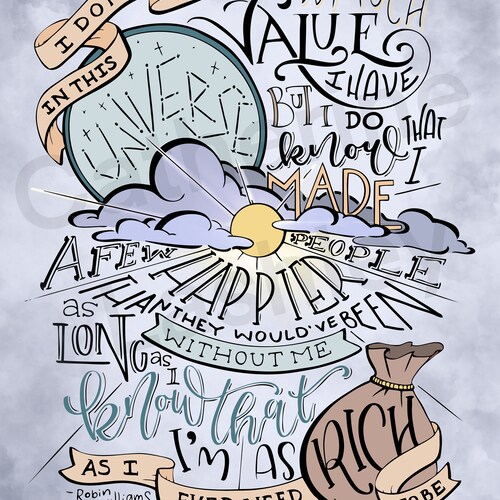 I DON
MUCH
VALUE
I HAVE
IN THIS
UNIVERSE
BUT I DO
know THAT I
MADE
A FEW PEOPLE
HAPPIER
THAN THEY WOULD'VE BEEN
WITHOUT ME
as
LONG as I
know that
I'M AS RICH
AS I EVER NEED
~Robin Williams